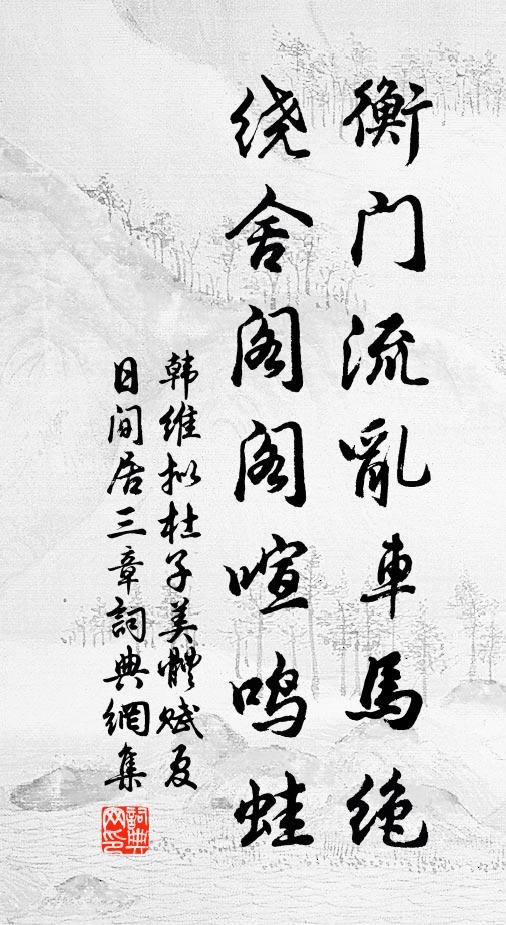 衡门流亂車馬绝
绕舍阁阁喧鸣蛙
韩维拟杜子美體赋夏
日闲居三章詞典網集
詞典
网印